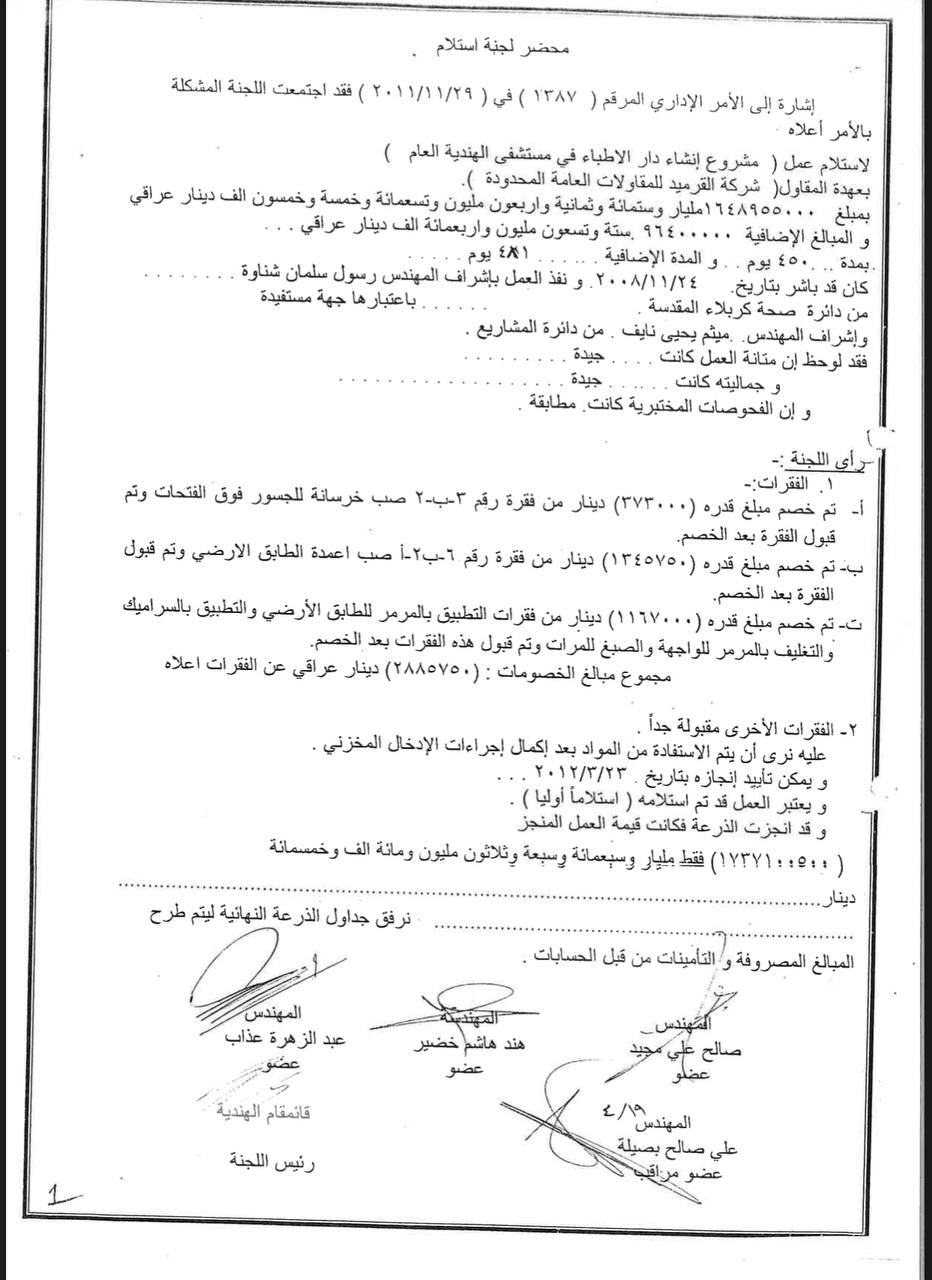 محضر لجنة استلام .
إشارة إلى الأمر الإداري المرقم ( ١٣٨٧ ) في ( ٢٠١١/١١/٢٩ ) فقد اجتمعت اللجنة المشكلة
بالأمر أعلاه
لاستلام عمل ( مشروع إنشاء دار الاطباء في مستشفى الهندية العام )
بعهدة المقاول( شركة القرميد للمقاولات العامة المحدودة ).
بمبلغ ١٦٤٨٩٥٥٠٠٠مليار وستمائة وثمانية واربعون مليون وتسعمائة وخمسة وخمسون الف دينار عراقي
و المبالغ الإضافية ٩٦٤٠٠٠٠٠ .ستة وتسعون مليون واربعمائة الف دينار عراقي . . .
بمدة .. . ٤٥٠ يوم . . و المدة الإضافية . . . . . . ٤٨١ يوم . . . . .
كان قد باشر بتاريخ. ٢٠٠٨/١١/٢٤. و نفذ العمل بإشراف المهندس رسول سلمان شناوة . . . . . . . .
من دائرة صحة كربلاء المقدسة . . . . . . . . باعتبارها جهة مستفيدة
وإشراف المهندس. .ميثم يحيى نايف . من دائرة المشاريع .
فقد لوحظ إن متانة العمل كانت . . . . جيدة . . . . . . . . .
و جماليته كانت . . . . . . جيدة . . . . . . . . . . . . . . . . . . .
و إن الفحوصات المختبرية كانت. مطابقة .
رأي اللجنة :-
١. الفقرات:-
أ- تم خصم مبلغ قدره (٣٧٣٠٠٠) دينار من فقرة رقم ٣-ب-٢ صب خرسانة للجسور فوق الفتحات وتم
قبول الفقرة بعد الخصم.
ب- تم خصم مبلغ قدره (١٣٤٥٧٥٠) دينار من فقرة رقم ٦-ب٢-أ صب اعمدة الطابق الارضي وتم قبول
الفقرة بعد الخصم.
ت- تم خصم مبلغ قدره (١١٦٧٠٠٠) دينار من فقرات التطبيق بالمرمر للطابق الأرضي والتطبيق بالسراميك
والتغليف بالمرمر للواجهة والصبغ للمرات وتم قبول هذه الفقرات بعد الخصم.
مجموع مبالغ الخصومات : (٢٨٨٥٧٥٠) دينار عراقي عن الفقرات اعلاه
٢- الفقرات الأخرى مقبولة جداً .
عليه نرى أن يتم الاستفادة من المواد بعد إكمال إجراءات الإدخال المخزني .
و يمكن تأييد إنجازه بتاريخ . ٢٠١٢/٣/٢٣ . . .
و يعتبر العمل قد تم استلامه ( استلاماً أوليا ) .
و قد انجزت الذرعة فكانت قيمة العمل المنجز
( ١٧٣٧١٠٠٥٠٠) فقط مليار وسبعمائة وسبعة وثلاثون مليون ومائة الف وخمسمائة
دينار...........................................................................
............................................................ نرفق جداول الذرعة النهائية ليتم طرح
المبالغ المصروفة و التأمينات من قبل الحسابات .
المهندس المهندسة المهندس
صالح علي مجيد هند هاشم خضير عبد الزهرة عذاب
عضو عضو عضو
٤/١٩
المهندس قائمقام الهندية
علي صالح بصيلة
عضو مراقب رئيس اللجنة
1